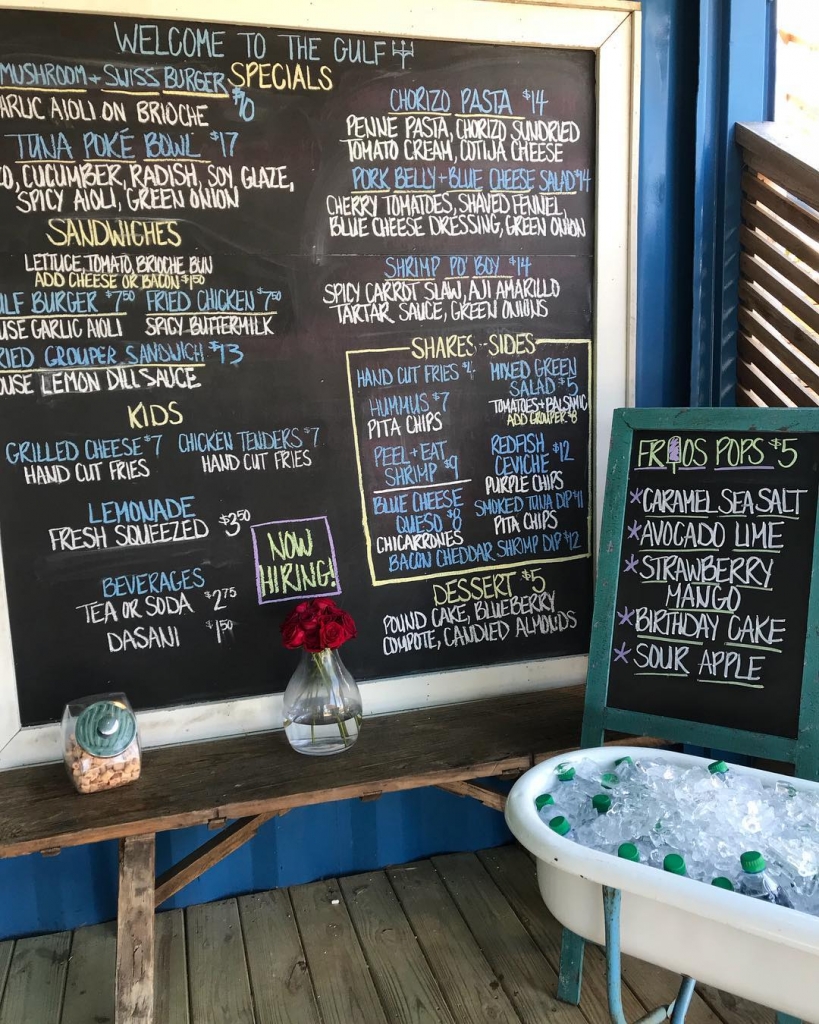 WELCOME TO THE GULF
SPECIALS
MUSHROOM + SWISS BURGER
ARLIC AIOLI ON BRIOCHE
TUNA POKÉ BOWL $17
CO, CUCUMBER, RADISH, SOY GLAZE,
SPICY AIOLI, GREEN ONION
SANDWICHES
LETTUCE, TOMATO, BRIOCHE BUN
ADD CHEESE OR BACON $1.50
ULF BURGER $7.50 FRIED CHICKEN $7.50
USE GARLIC AIOLI SPICY BUTTERMILK
RIED GROUPER SANDWICH $13
OUSE LEMON DILL SAUCE
KIDS
GRILLED CHEESE $7 CHICKEN TENDERS $7
HAND CUT FRIES HAND CUT FRIES
LEMONADE
FRESH SQUEEZED $3.50
BEVERAGES
TEA OR SODA $2.75
DASANI $1.50
NOW
HIRING!
CHORIZO PASTA $14
PENNE PASTA, CHORIZO SUNDRIED
TOMATO CREAM, COTIJA CHEESE
PORK BELLY + BLUE CHEESE SALAD $14
CHERRY TOMATOES, SHAVED FENNEL,
BLUE CHEESE DRESSING, GREEN ONION
SHRIMP PO' BOY $14
SPICY CARROT SLAW, AJI AMARILLO
TARTAR SAUCE, GREEN ONIONS
SHARES - SIDES
HAND CUT FRIES $4
HUMMUS $7
PITA CHIPS
PEEL + EAT
SHRIMP $9
BLUE CHEESE
QUESO $8
CHICARRONES
MIXED GREEN
SALAD $5
TOMATOES + BALSAMIC
ADD GROUPER $8
REDFISH
CEVICHE $12
PURPLE CHIPS
SMOKED TUNA DIP $11
PITA CHIPS
BACON CHEDDAR SHRIMP DIP $12
DESSERT $5
POUND CAKE, BLUEBERRY
COMPOTE, CANDIED ALMONDS
FRIOS POPS $5
*CARAMEL SEA SALT
*AVOCADO LIME
*STRAWBERRY
MANGO
*BIRTHDAY CAKE
*SOUR APPLE